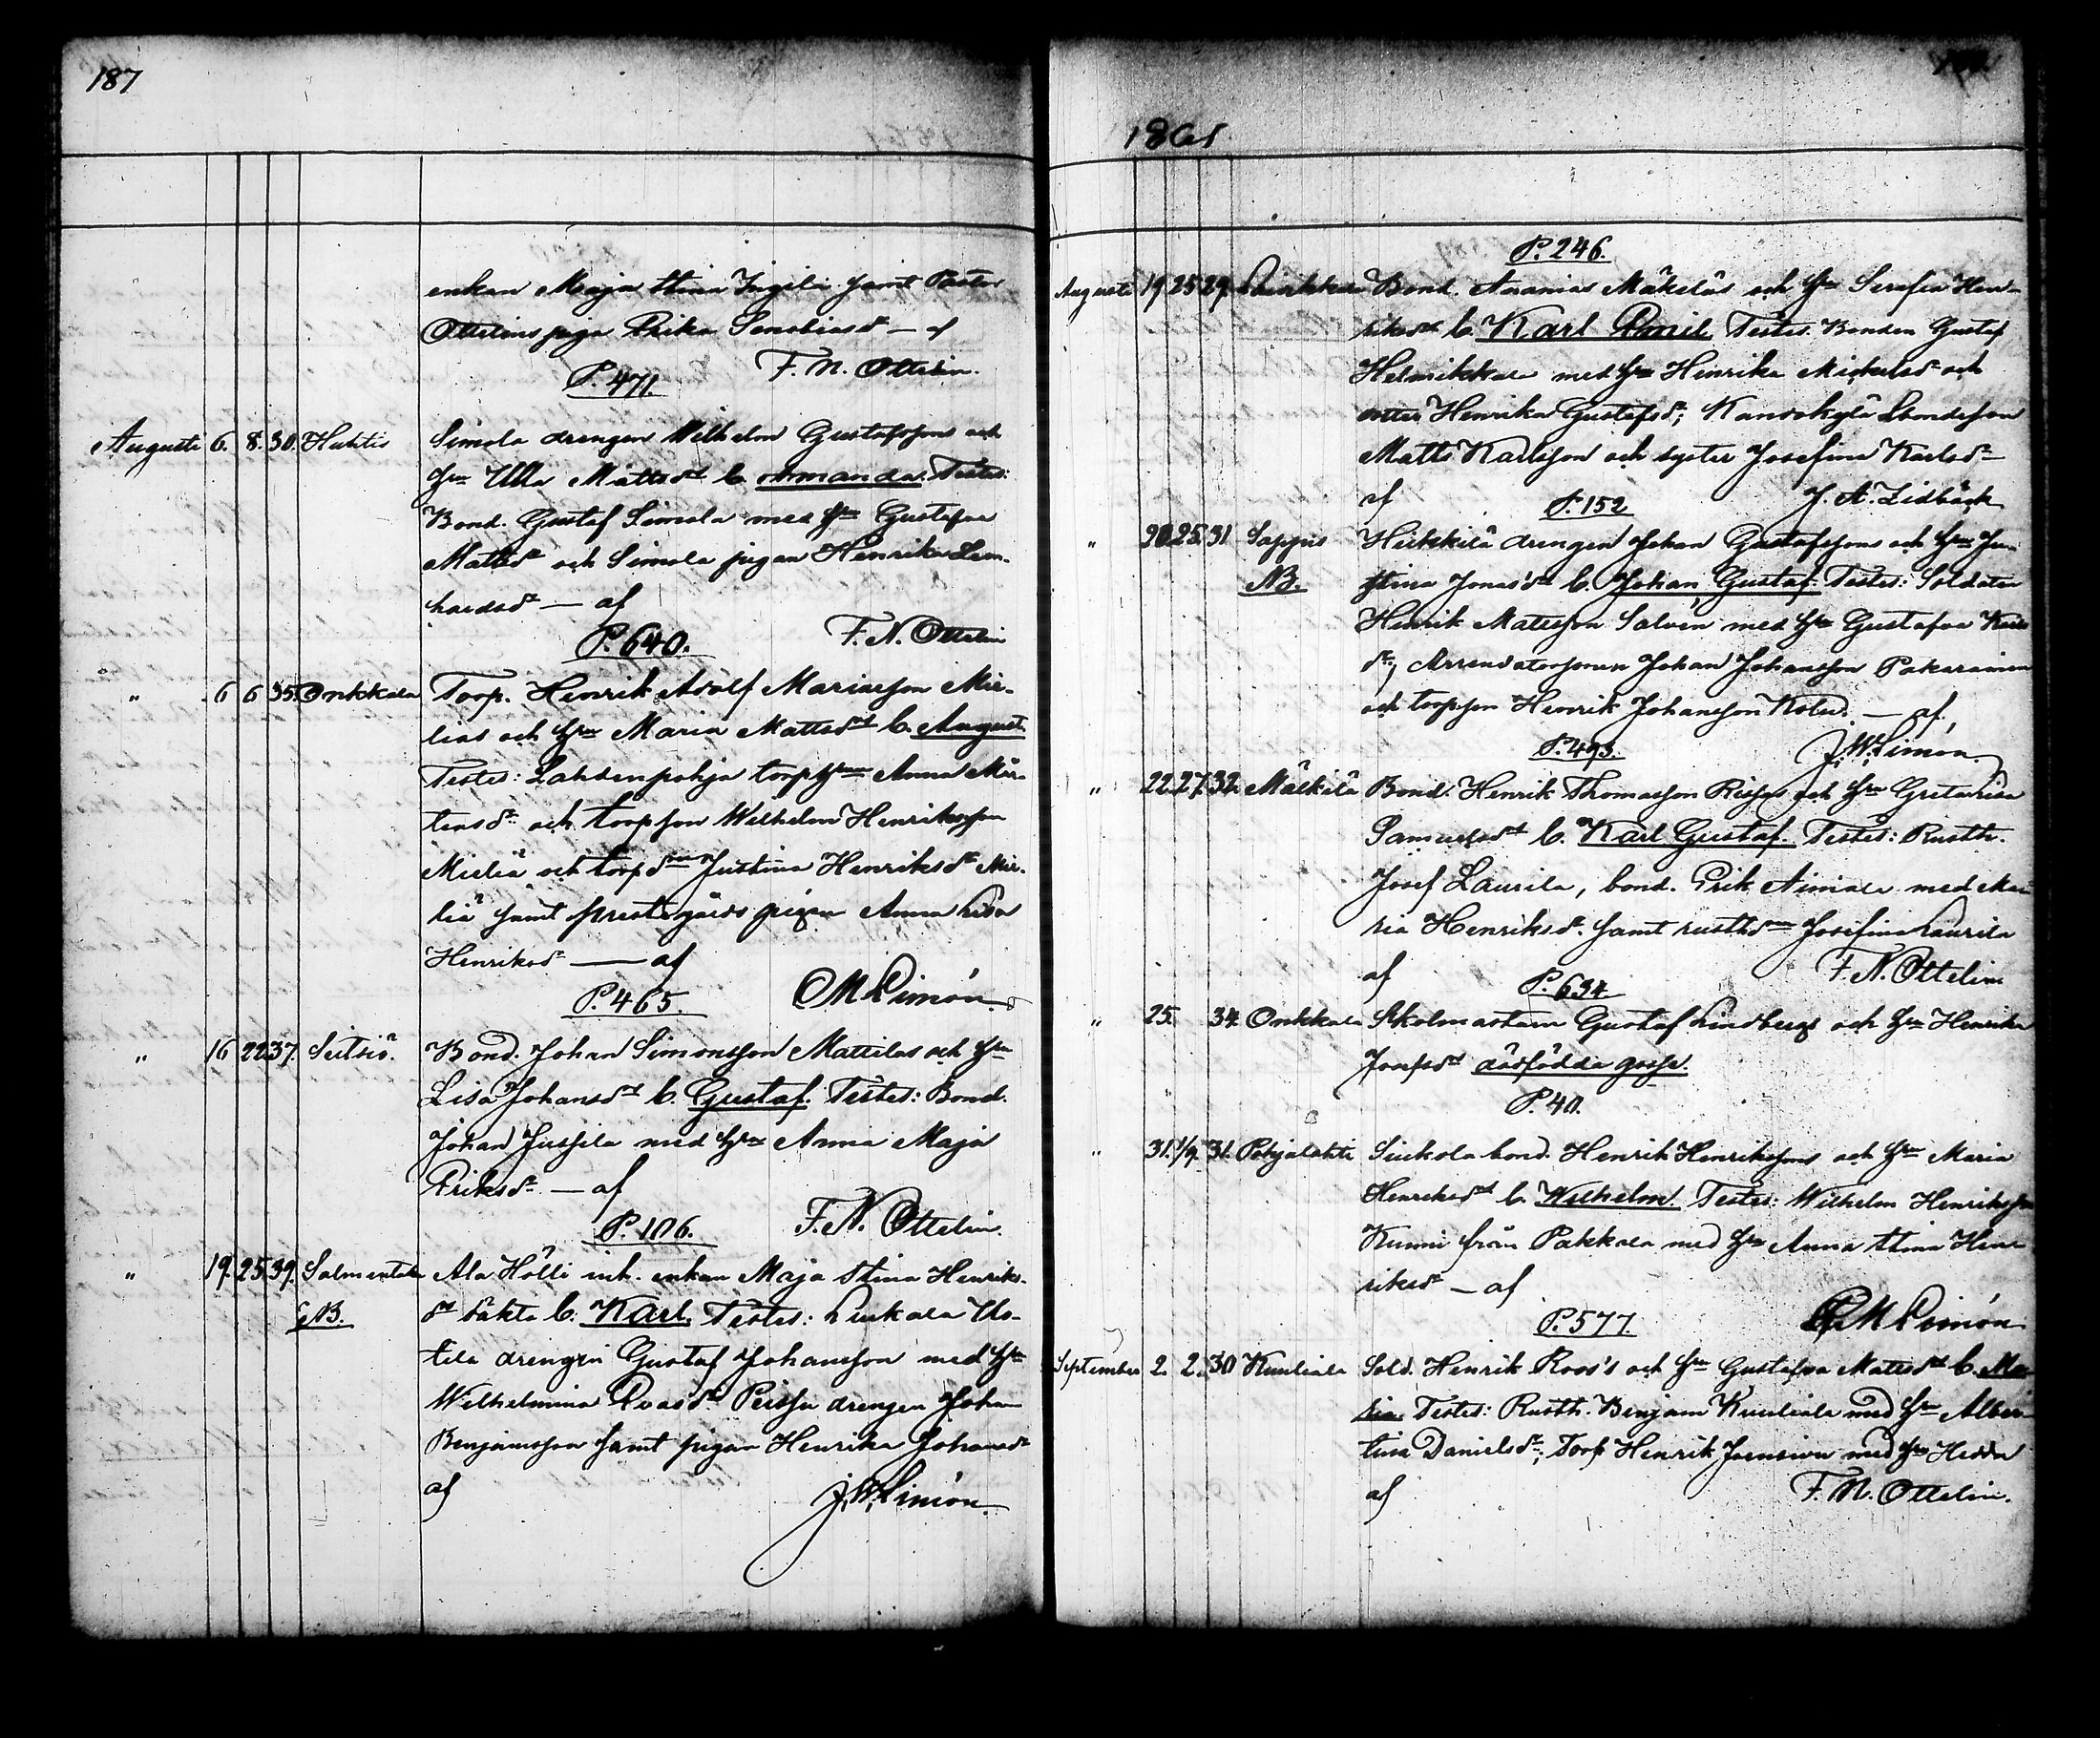 187
enkan Maja Stina Ingila samt Pastor
Ottelins piga Erika Senobiasdr — af
F. N. Ottelin.
P. 471.
Augusti 6. 8. 30. Huhtis Simola drengen Wilhelm Gustafssons och
hru Ulla Mattsdrs b. Amanda. Testes:
Bond. Gustaf Simola med hru Gustafva
Mattsdr och Simola pigan Henrika Len-
hardsdr — af
F. N. Ottelin
P. 640.
" 6 6 35. Onkkala Torp. Henrik Adolf Mariasson Mie-
liäs och hru Maria Mattsdrs b. August.
Testes: Lahdenpohja torphrun Anna Mår-
tensdr och torpson Wilhelm Henriksson
Mieliä och torpdrn Justina Henriksdr Mie-
liä samt prestgårds pigan Anna Lisa
Henriksdr — af
P. 465.
" 16 22 37. Seitsiö. Bond. Johan Simonsson Mattilas och hru
Lisa Johansdrs b. Gustaf. Testes: Bond.
Johan Jussila med hru Anna Maja
Eriksdr — af
F. N. Ottelin.
P. 106.
" 19. 25 39. Salmentaka Ala Hölli inh. enkan Maja Stina Henriks-
NB. drs oäkta b. Karl. Testes: Luikala Us-
tila drengen Gustaf Johansson med hru
Wilhelmina Evasdr Peissu drengen Johan
Benjamsson samt pigan Henrika Johansdr
af
J. W. Limón.
1861
P. 246.
Augusti 19 25 29. Bond. Ananias Mäkeläs och hru Serafia Hen-
riksdrs b. Karl Emil. Testes: Bonden Gustaf
Helmikkala med hru Henrika Mickelsdr och
enkan Henrika Gustafsdr; Kanvokylä bondesson
Matts Karlsson och syster Josefina Karlsdr
af
J. A. Lidbäck
P. 152
" 20. 25. 31 Sappis Heikkilä drengen Johan Gustafssons och hru Ju-
NB. stina Jonasdrs b. Johan Gustaf. Testes: Soldaten
Henrik Matsson Salvén med hru Gustafva Karls
dr; Arrendatorssonen Johan Johansson Pakarainen
och torpson Henrik Johansson Kolu. — af
J. W. Limón.
P. 493.
" 22. 27. 32. Mälkilä Bond. Henrik Thomasson Rissus och hru Greta Lisa
Samuelsdrs b. Karl Gustaf. Testes: Rusth.
Josef Laurila, bond. Erik Aimala med Ma-
ria Henriksdr samt rusthdrn Josefina Laurila
af
F. N. Ottelin
P. 634.
" 25. 34. Onkkala Skolmästarn Gustaf Lindbergs och hru Henrika
Josefsdrs dödfödda gosse.
P. 40.
" 31. 1/9. 31. Pohjalahti Siukola bond. Henrik Henrikssons och hru Maria
Henriksdrs b. Wilhelm. Testes: Wilhelm Henriksson
Kunni från Pakkala med hru Anna Stina Hen-
riksdr — af
P. 577.
September 2. 2. 30 Kuuliala Sold. Henrik Roos's och hru Gustafva Mattsdrs b. Ma-
ria. Testes: Rusth. Benjam Kuuliala med hru Alber-
tina Danielsdr; Torp. Henrik Joensivu med hru Hedda
af
F. N. Ottelin.